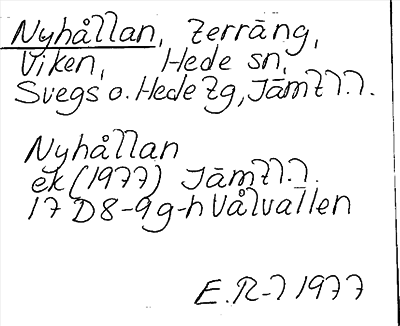 Nyhållan, Terräng,
Viken, Hede sn,
Svegs o. Hede Tg, Jämtl.l.
Nyhållan
ek (1977) Jämtl.l.
17 D8-9g-h Vålvallen
E.R-l 1977